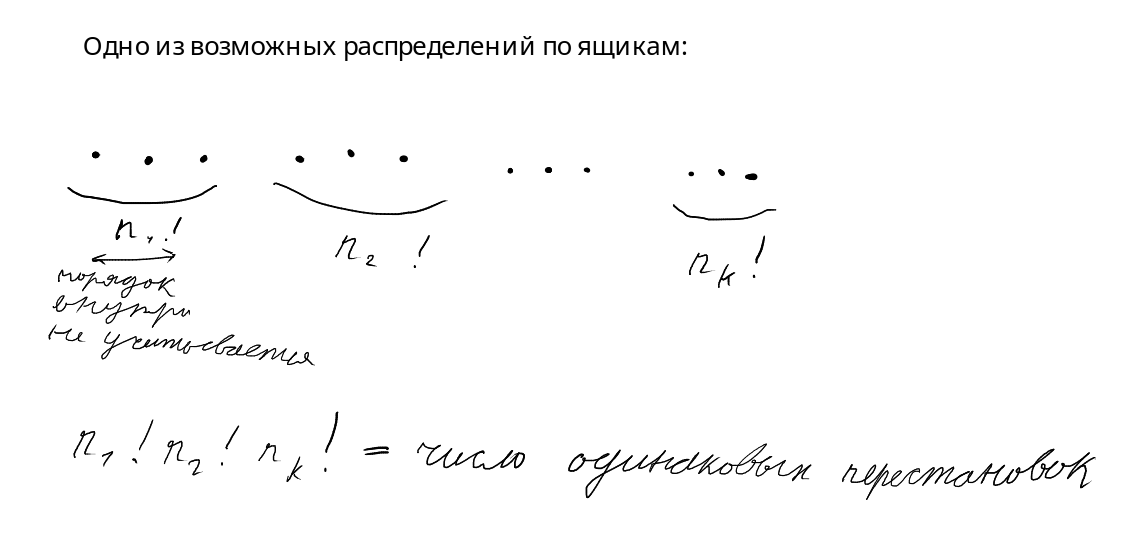 Одно из возможных распределений по ящикам:
. . . . . . . . . . . .
n₁! n₂! nₖ!
порядок
внутри
не учитывается
n₁! n₂! nₖ! = число одинаковых перестановок